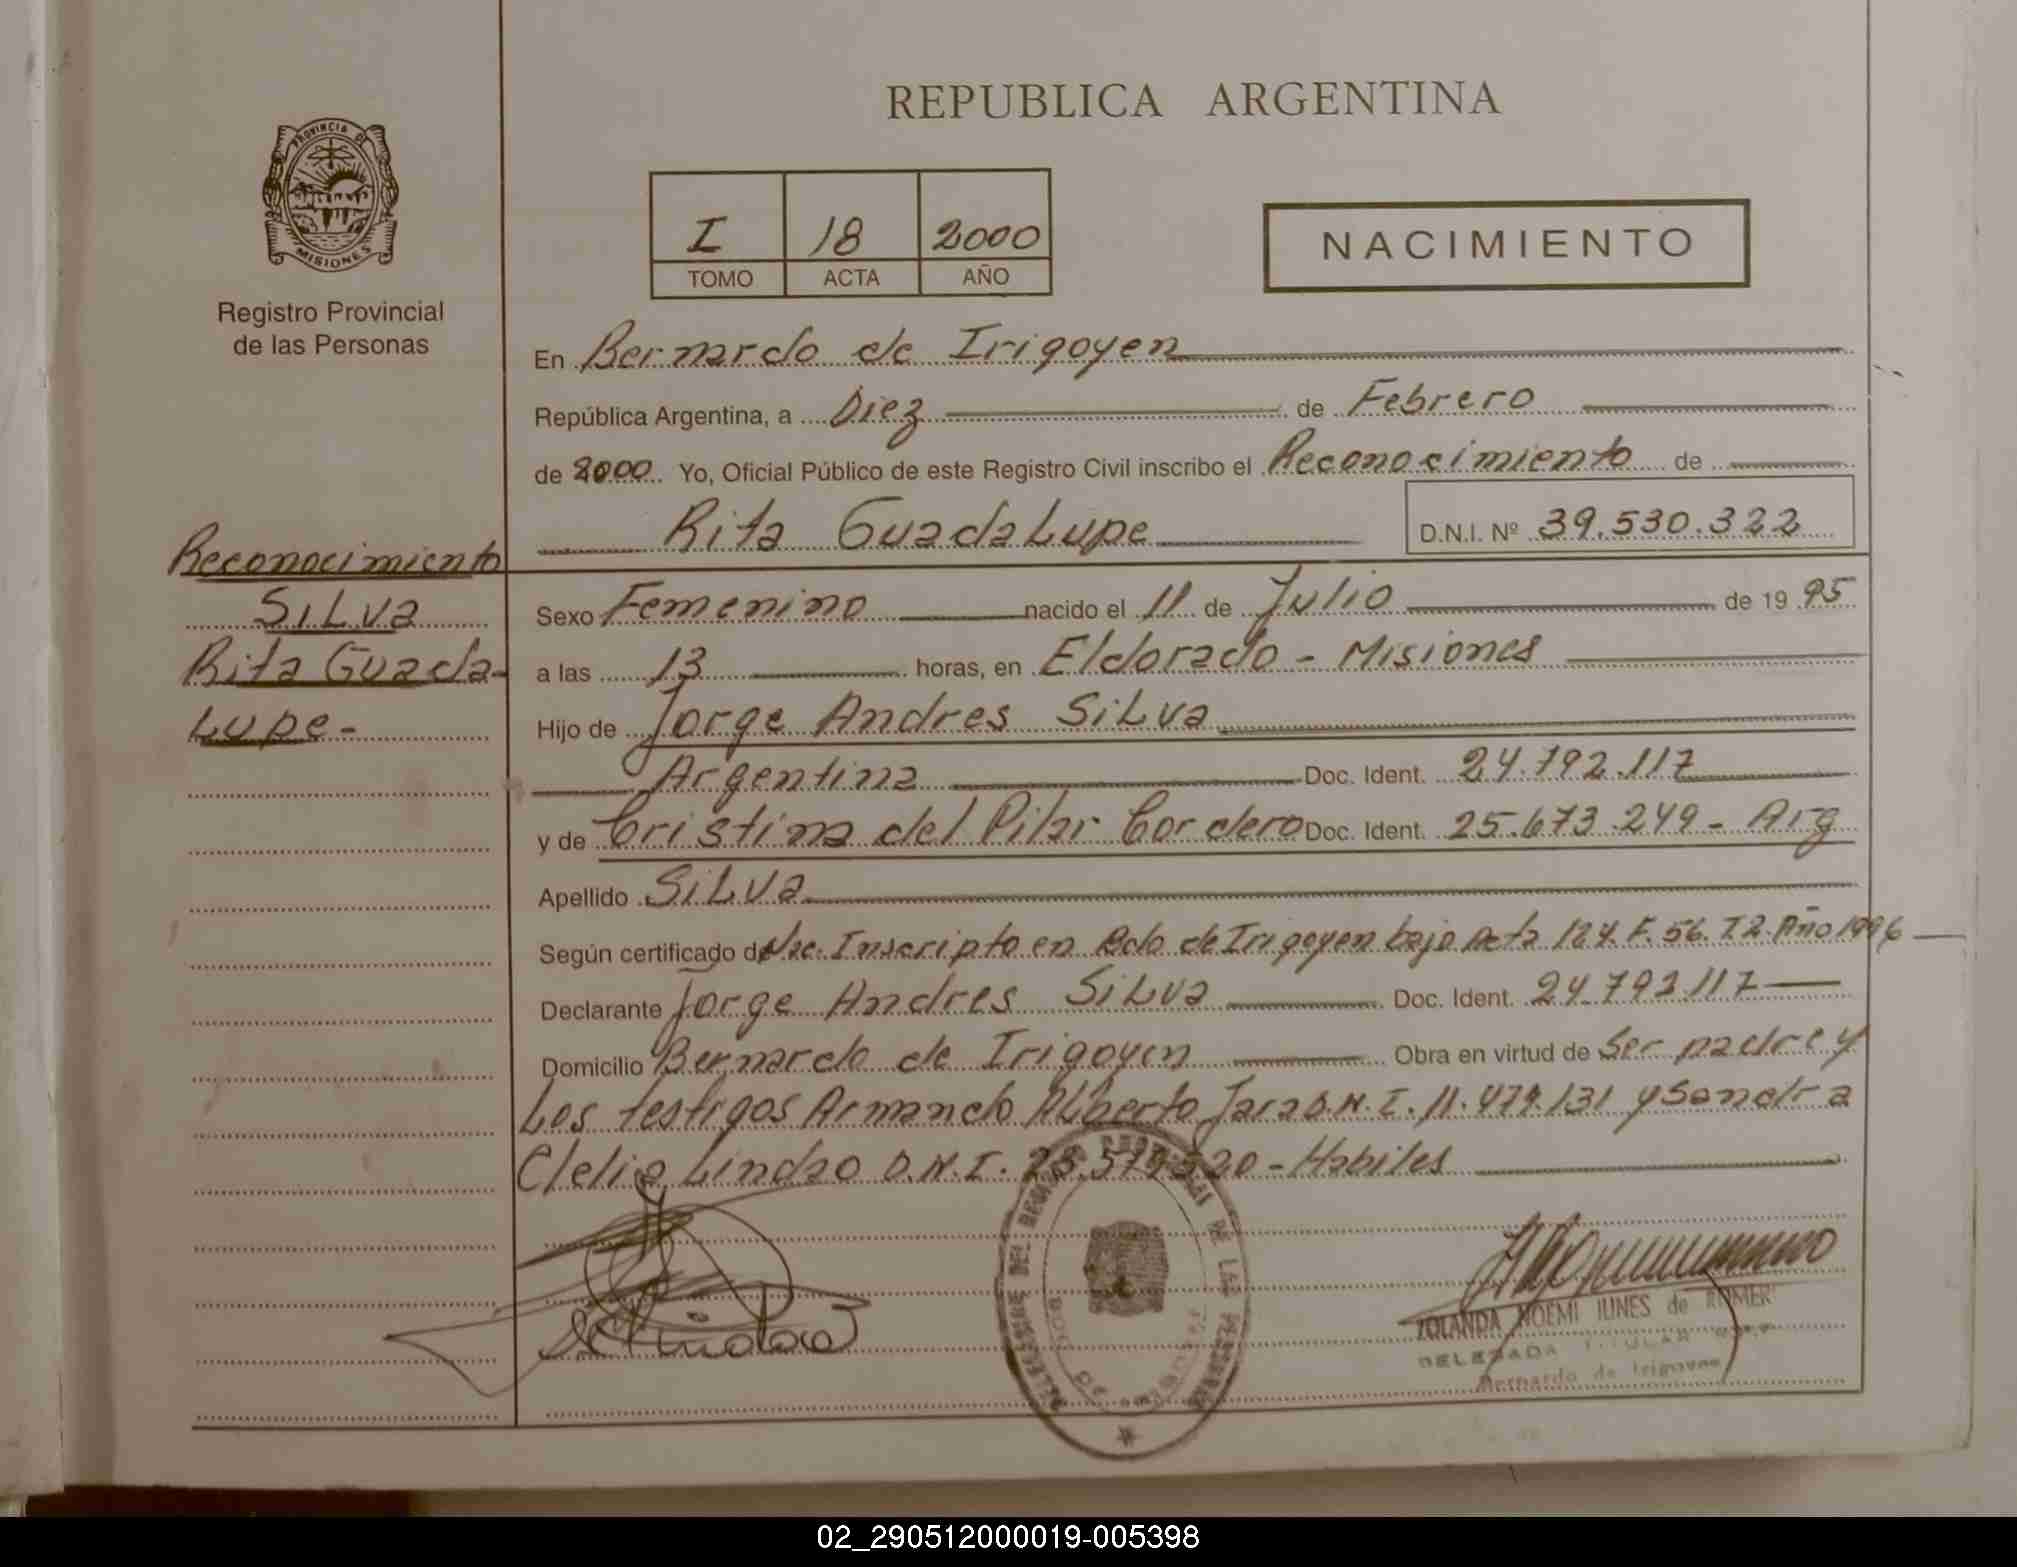 REPUBLICA ARGENTINA
PROVINCIA DE
MISIONES
Registro Provincial
de las Personas
I 18 2000
TOMO ACTA AÑO
NACIMIENTO
En Bernardo de Irigoyen
República Argentina, a Diez de Febrero
de 2000 Yo, Oficial Público de este Registro Civil inscribo el Reconocimiento de
Rita GuadaLupe D.N.I. Nº 39.530.322
Reconocimiento
SiLva
Rita Guada-
Lupe-
Sexo Femenino nacido el 11 de Julio de 19 95
a las 13 horas, en Eldorado - Misiones
Hijo de Jorge Andres SiLva
Argentina Doc. Ident. 24.792.117
y de Cristina del Pilar Cordero Doc. Ident. 25.673.249 - Arg
Apellido SiLva
Según certificado de Nac. Inscripto en Bdo de Irigoyen bajo Acta 124. F. 56. T2. Año 1996
Declarante Jorge Andres SiLva Doc. Ident. 24.792.117
Domicilio Bernardo de Irigoyen Obra en virtud de Ser padre y
Los testigos Armando Alberto Jara D.N.I. 11.479.131 y Sandra
Clelia Lindao D.N.I. 23.579.520 - Habiles
DELEGADA TITULAR
Bernardo de Irigoyen
02_290512000019-005398